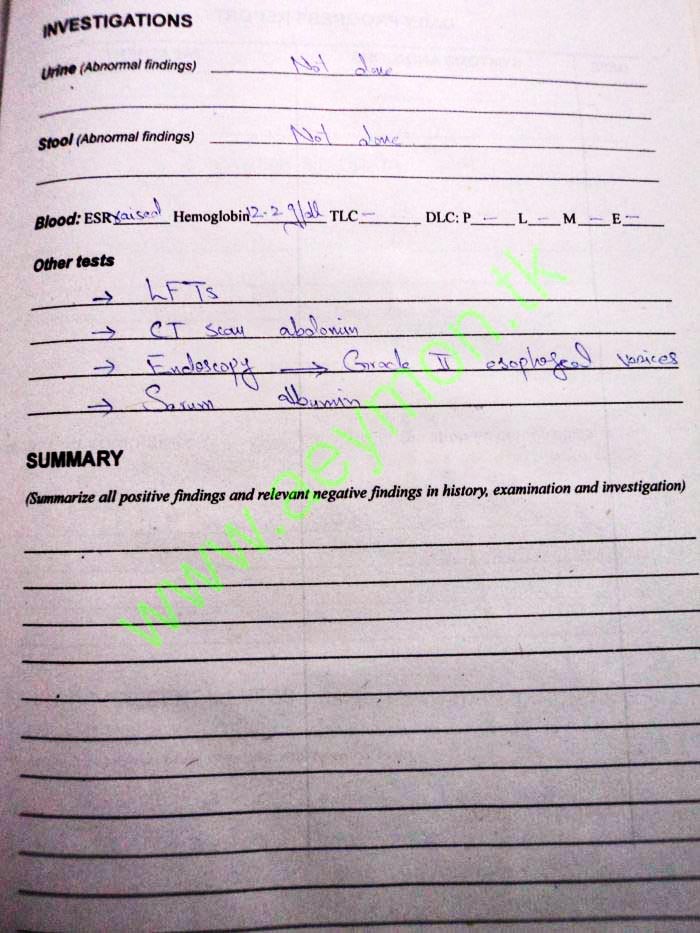 INVESTIGATIONS
Urine (Abnormal findings) Not done
Stool (Abnormal findings) Not done
Blood: ESR raised Hemoglobin 12.2 g/dl TLC – DLC: P – L – M – E –
Other tests
→ LFTs
→ CT scan abdomin
→ Endoscopy → Grade II esophageal varices
→ Serum albumin
SUMMARY
(Summarize all positive findings and relevant negative findings in history, examination and investigation)
www.aeymon.tk